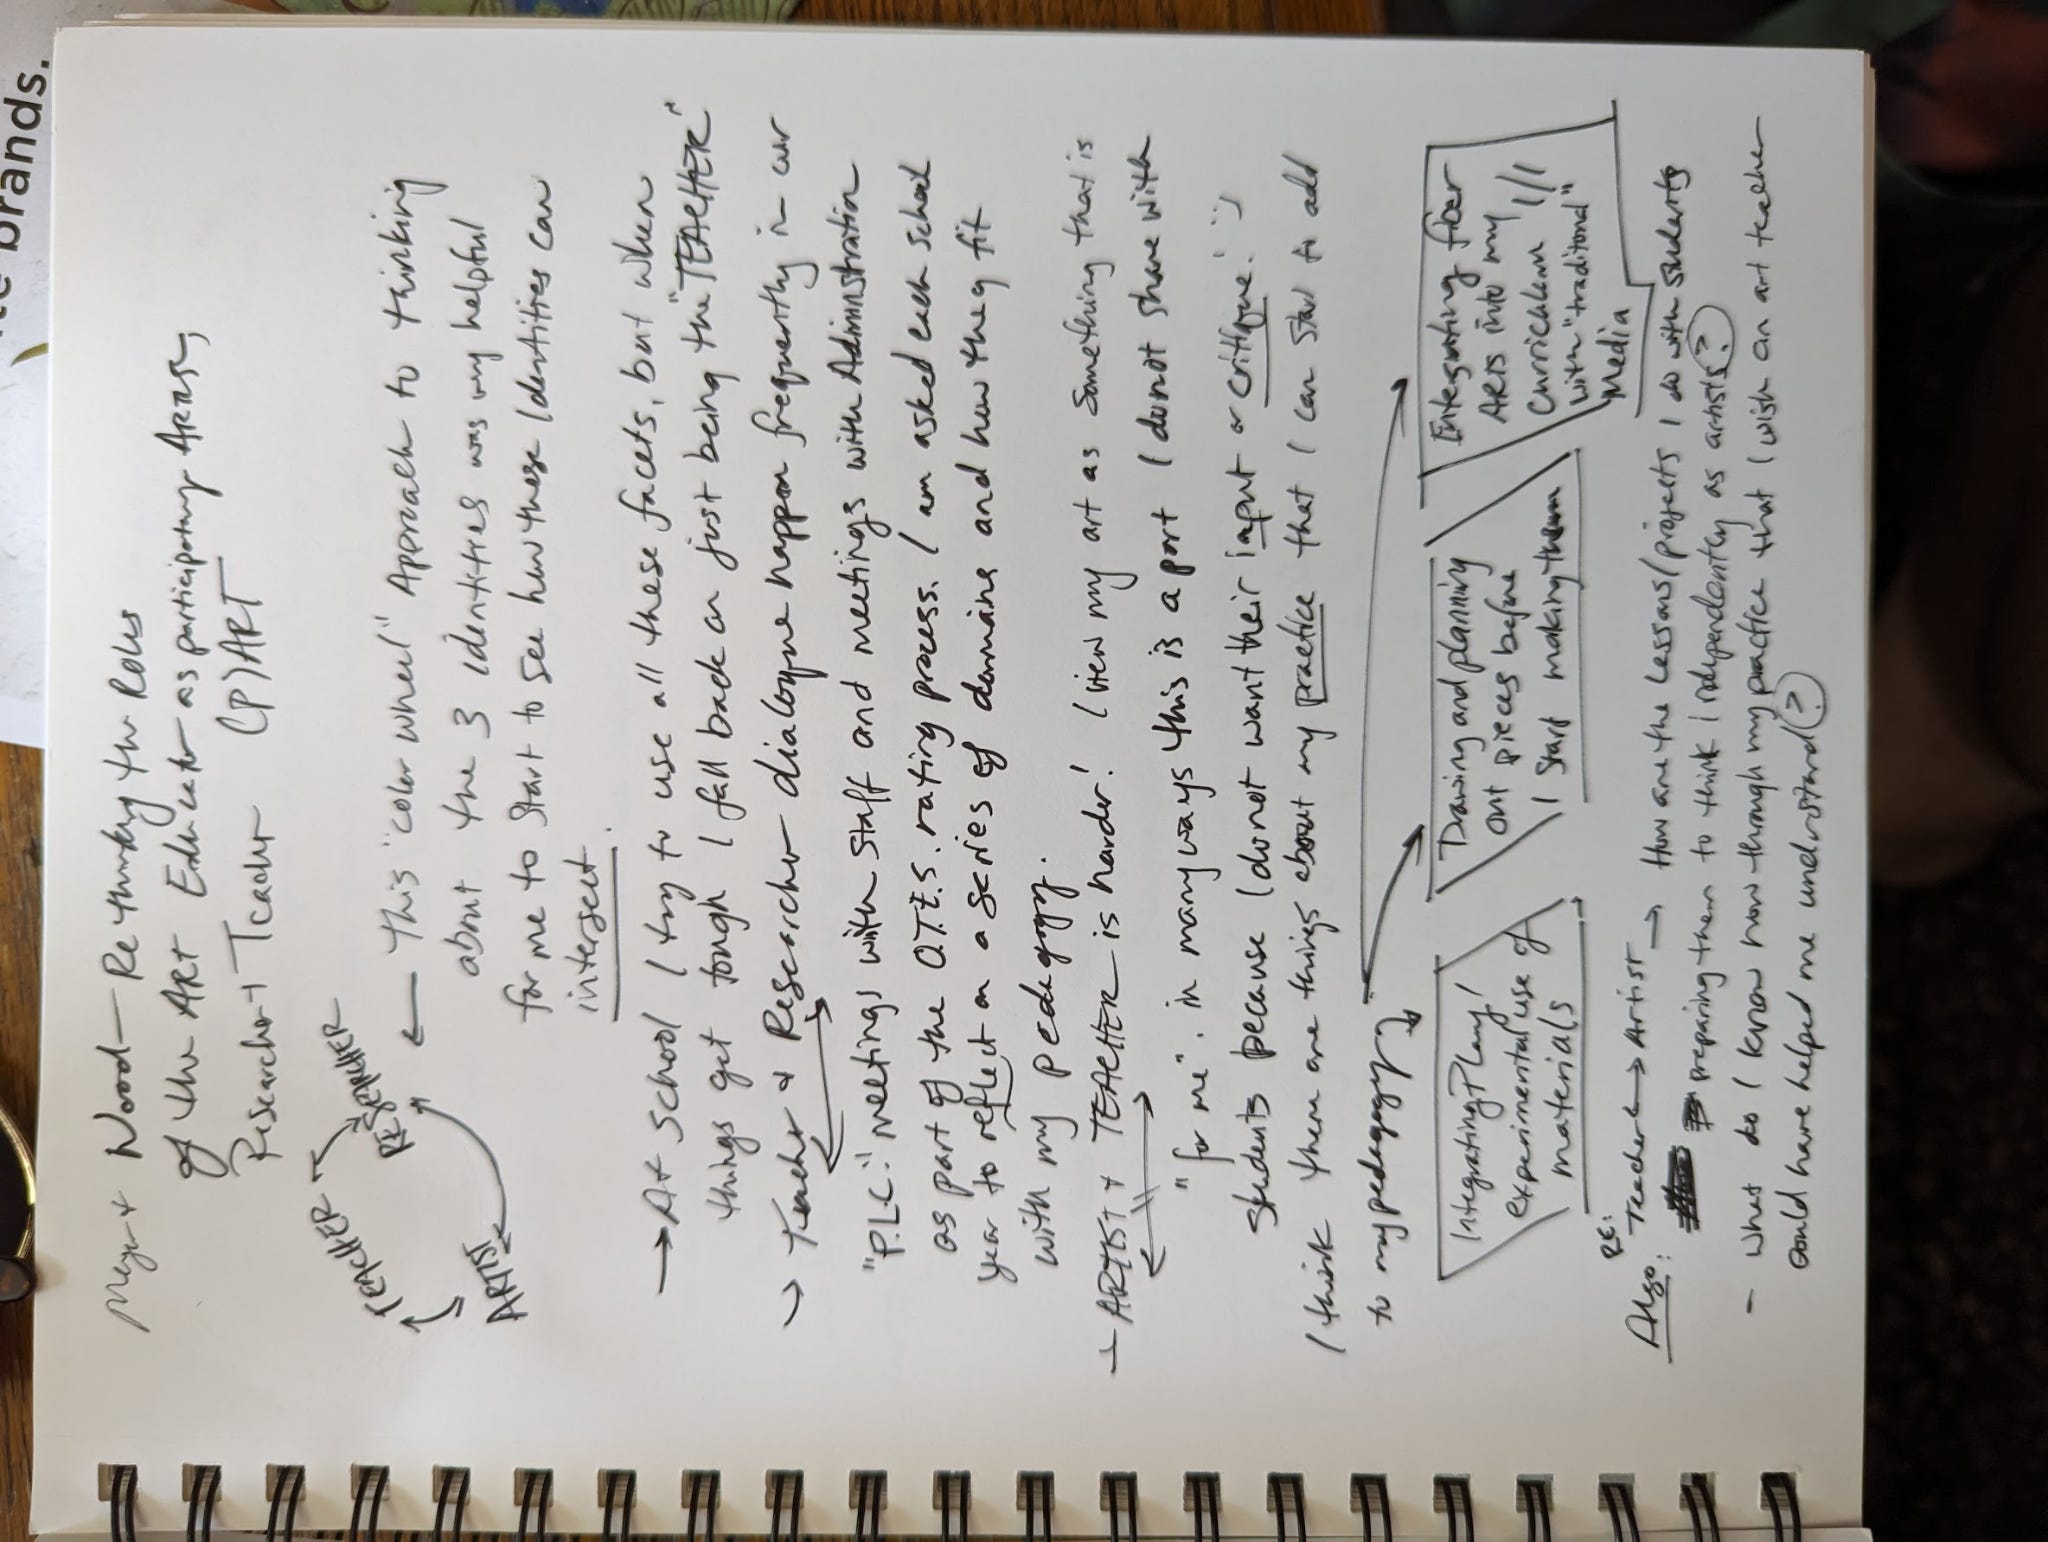 brands.
Meyer + Wood — Rethinking the Roles
of the ART Educator as participatory ARTIST,
Researcher + Teacher (P)ART
TEACHER
RESEARCHER
ARTIST
← This "color wheel" Approach to thinking
about the 3 identities was very helpful
for me to start to see how these identities can
intersect.
→ At school I try to use all these facets, but when
things get tough I fall back on just being the "TEACHER"
→ Teacher + Researcher dialogue happen frequently in our
"P.L.C." meetings with staff and meetings with Administration
as part of the O.T.E.S. rating process. I am asked each school
year to reflect on a series of domains and how they fit
with my pedagogy.
→ ARTIST + TEACHER is harder! I view my art as something that is
"for me". in many ways this is a part I do not share with
students because I do not want their input or critique. :)
I think there are things about my practice that I can start to add
to my pedagogy
Integrating Play/
experimental use of
materials
Drawing and planning
out pieces before
I start making them
Integrating fiber
ARTS into my
Curriculum
with "traditional"
Media
Also: RE: Teacher → Artist → How are the lessons/projects I do with students
preparing them to think independently as artists?
- What do I know now through my practice that I wish an art teacher
could have helped me understand?